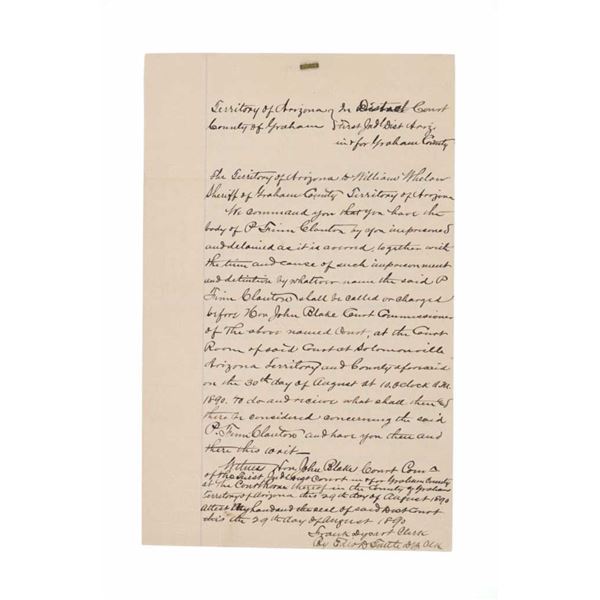 Territory of Arizona } In District Court
County of Graham } First Jud Dist Ariz
in & for Graham County
The Territory of Arizona to William Whelan
Sheriff of Graham County Territory of Arizona
We command you that you have the
body of P Finn Clanton by you imprisoned
and detained as it is averred, together with
the time and cause of such imprisonment
and detention by whatever name the said P
Finn Clanton shall be called or charged
before Hon, John Blake Court Commissioner
of the above named Court, at the Court
Room of said Court at Solomonville
Arizona Territory and County aforesaid
on the 30th day of August at 10. O clock A.M.
1890. to do and receive what shall then &
there be considered concerning the said
P. Finn Clanton and have you then and
there this writ—
Witness Hon, John Blake Court Com
of the Dist Court in & for Graham County
at the Court House thereof in the County of Graham
Territory of Arizona this 29th day of August 1890
attest my hand and the seal of said Dist Court
this the 29th day of August 1890
Frank Dysart Clerk
By D Tuttle Dep Clk